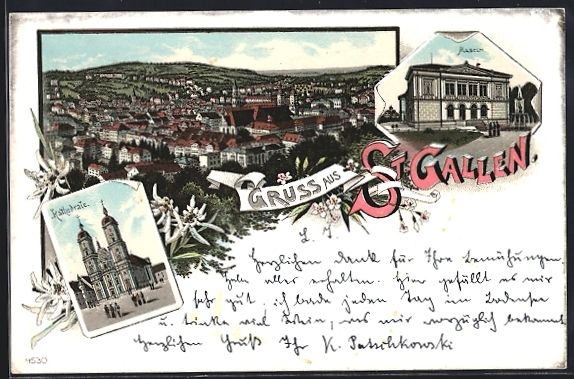 Museum.
GRUSS AUS ST GALLEN.
Kathedrale.
L. J.
Herzlichen dank für Ihre bemühungen.
alles erhalten. hier gefällt es mir
sehr gut. ich bade jeden Tag im Bodensee
u. trinke viel Wein, was mir vorzüglich bekommt
Herzlichen Gruß Ihr K.
4530